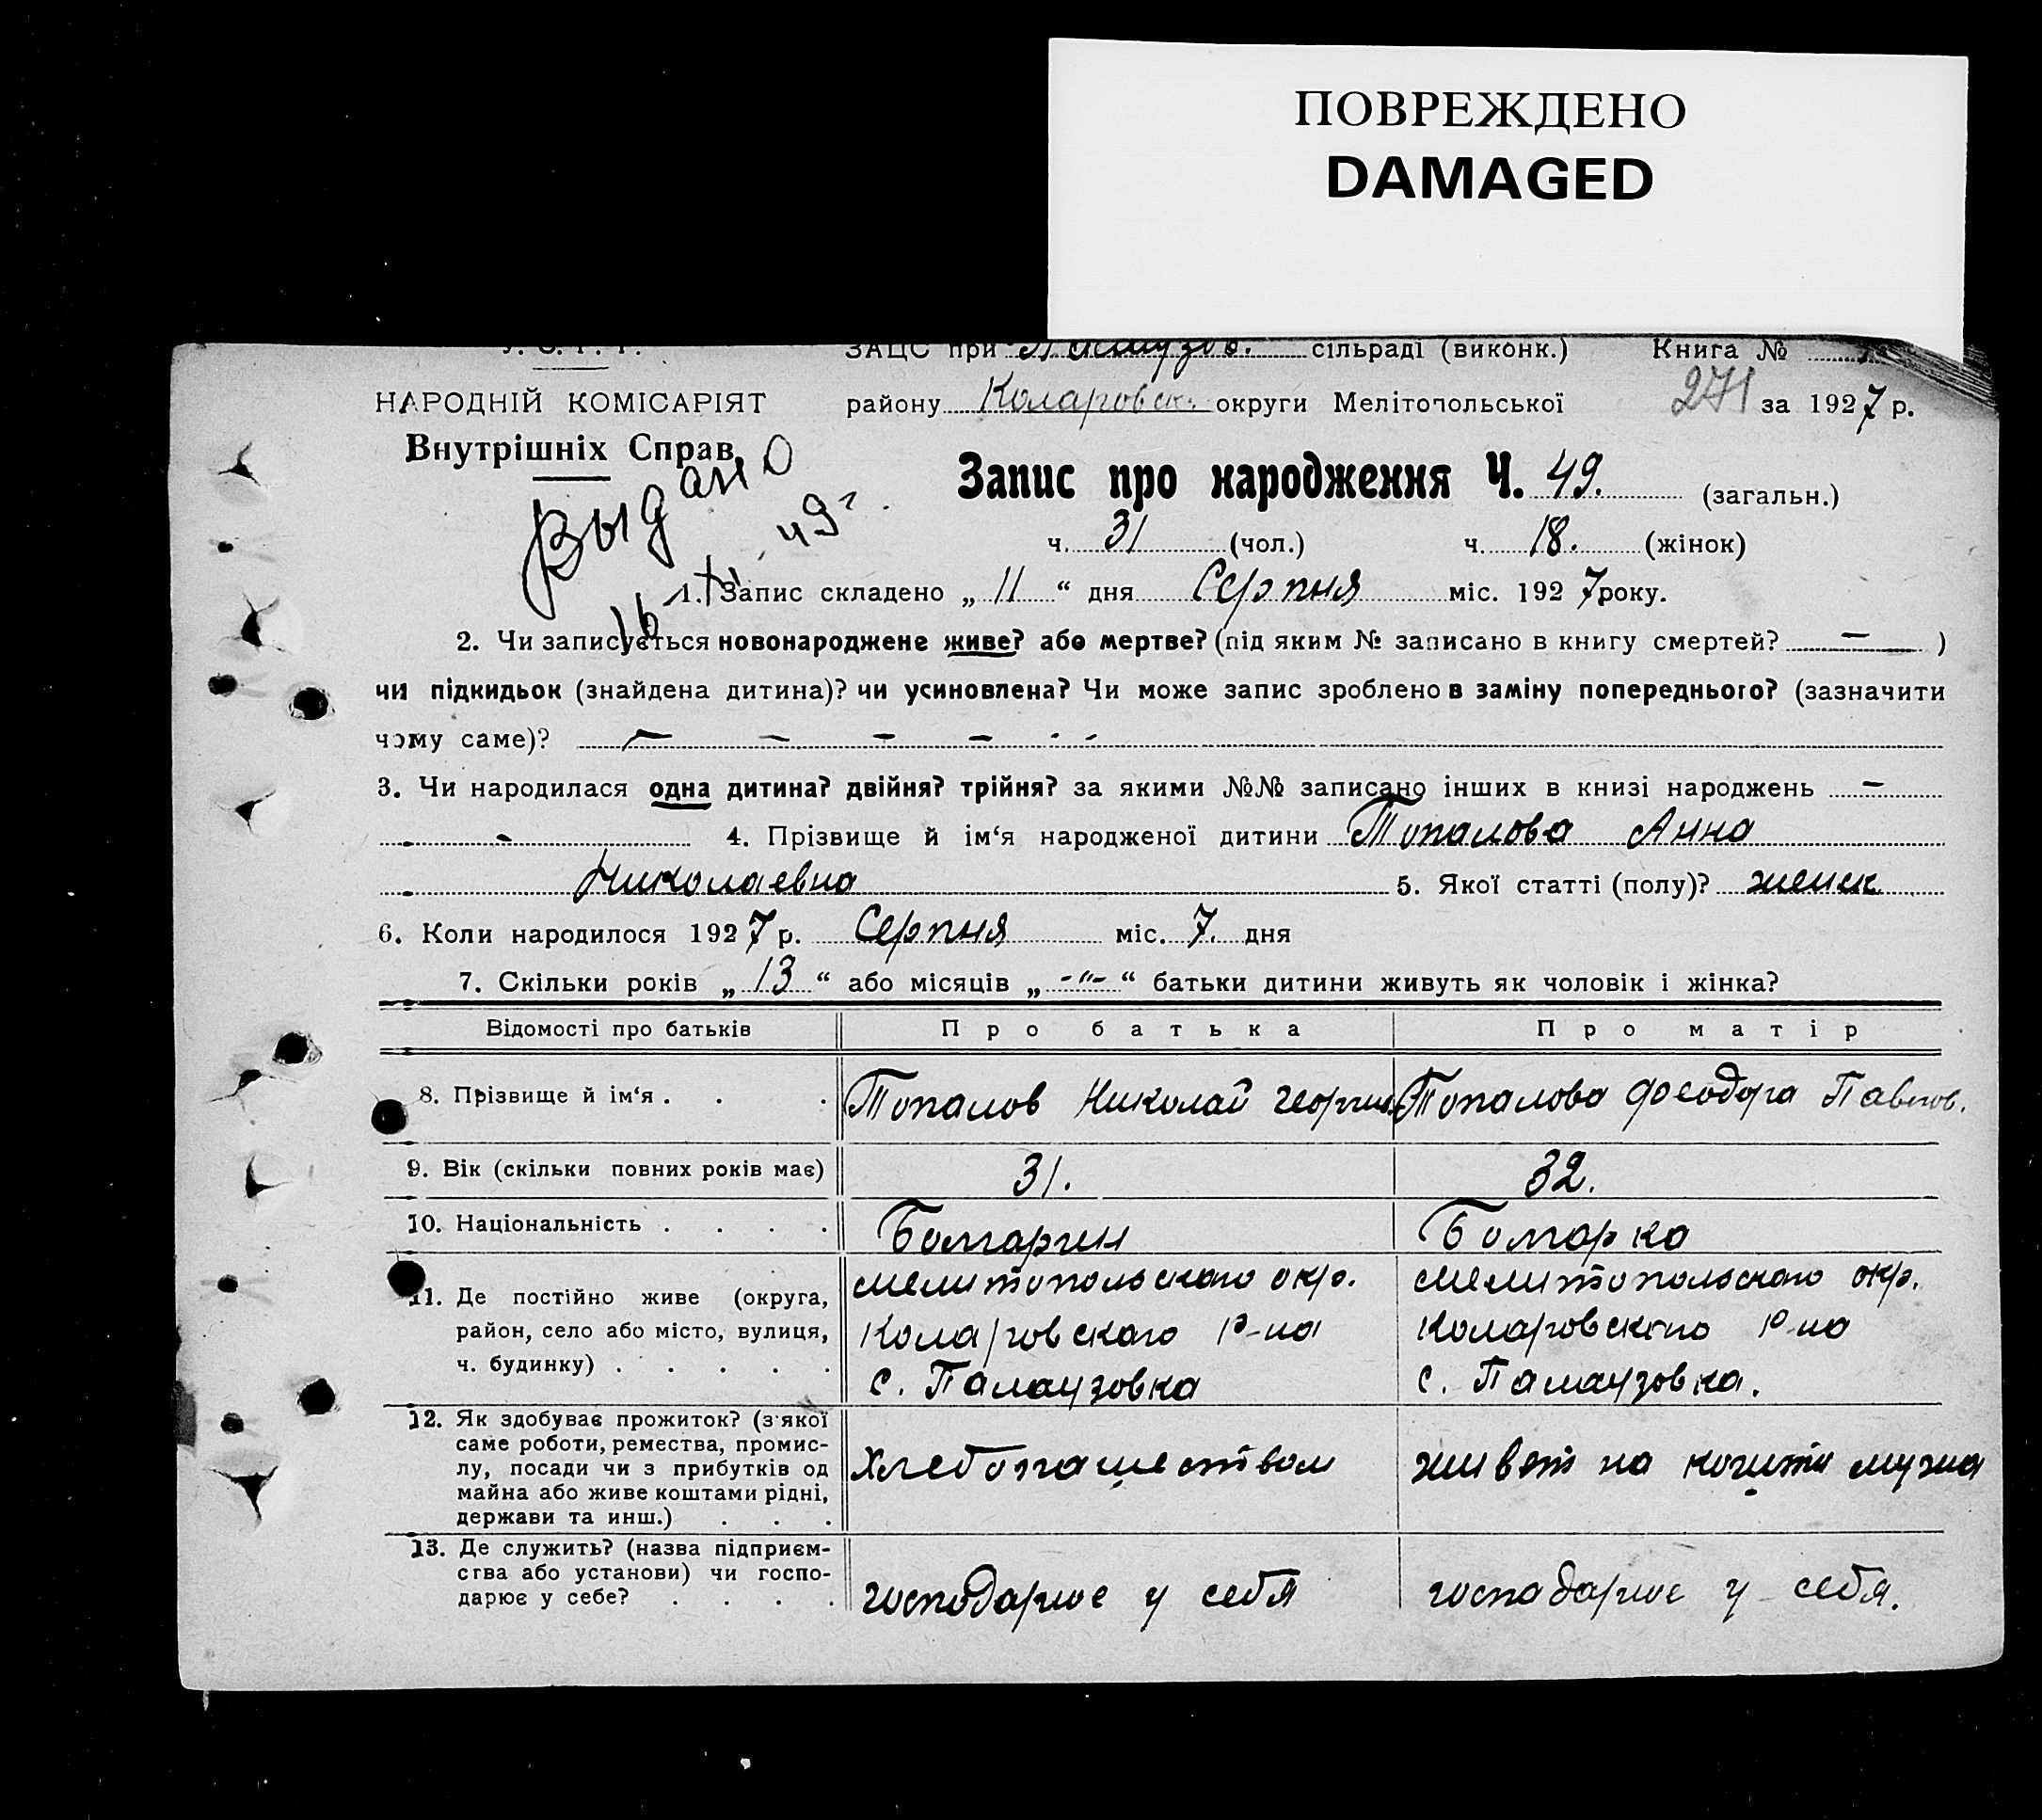 ПОВРЕЖДЕНО
DAMAGED
У. С. Р. Р.
ЗАЦС при Палаузов. сільраді (виконк.) Книга №
НАРОДНІЙ КОМІСАРІЯТ
району Коларовск. округи Мелітопольської 271 за 1927 р.
Внутрішніх Справ
Выдано
Запис про народження Ч. 49. (загальн.)
49 г.
ч. 31 (чол.) ч. 18. (жінок)
1. Запис складено „ 11 “ дня Серпня міс. 1927 року.
16
2. Чи записується новонароджене живе? або мертве? (під яким № записано в книгу смертей? — )
чи підкидьок (знайдена дитина)? чи усиновлена? Чи може запис зроблено в заміну попереднього? (зазначити
чому саме)? — — — — - -
3. Чи народилася одна дитина? двійня? трійня? за якими №№ записано інших в книзі народжень —
- 4. Прізвище й ім‘я народженої дитини Топалова Анна
Николаевна 5. Якої статті (полу)? женск.
6. Коли народилося 1927 р. Серпня міс. 7. дня
7. Скільки років „ 13 “ або місяців „ -"- “ батьки дитини живуть як чоловік і жінка?
Відомості про батьків Про батька Про матір
8. Прізвище й ім‘я . . . Топалов Николай Георгиев. Топалова Феодора Павлов.
9. Вік (скільки повних років має) 31. 32.
10. Національність . . . . Болгарин Болгарка
11. Де постійно живе (округа, Мелитопольского окр. Мелитопольского окр.
район, село або місто, вулиця, Коларовского р-на Коларовского р-на
ч. будинку) . . . . . с. Палаузовка с. Палаузовка.
12. Як здобуває прожиток? (з якої
саме роботи, ремества, промис-
лу, посади чи з прибутків од Хлебопашеством живет на кошти мужа
майна або живе коштами рідні,
держави та инш.) . . .
13. Де служить? (назва підприєм-
ства або установи) чи госпо-
дарює у себе? . . . . господарюе у себя господарюе у себя.